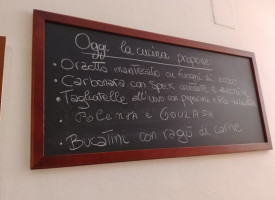 Oggi la cucina propone
• Orzotto mantecato ai funghi di bosco
• Carbonara con Speck carote e zucchine
• Tagliatelle all'uovo con peperoni e
• Polenta e GOULASH
• Bucatini con ragù di carne